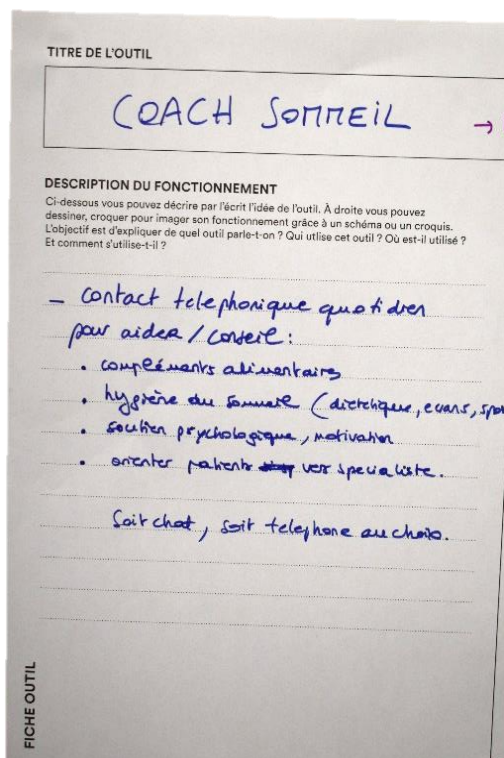 TITRE DE L'OUTIL
COACH SOMMEIL →
DESCRIPTION DU FONCTIONNEMENT
Ci-dessous vous pouvez décrire par l'écrit l'idée de l'outil. À droite vous pouvez
dessiner, croquer pour imager son fonctionnement grâce à un schéma ou un croquis.
L'objectif est d'expliquer de quel outil parle-t-on ? Qui utlise cet outil ? Où est-il utilisé ?
Et comment s'utilise-t-il ?
– contact telephonique quotidien
pour aider / conseil :
• compléments alimentaires
• hygiène du sommeil (dietetique, ecrans, spo
• soutien psychologique, motivation
• orienter patients vers specialiste.
Soit chat, soit telephone au choix.
FICHE OUTIL